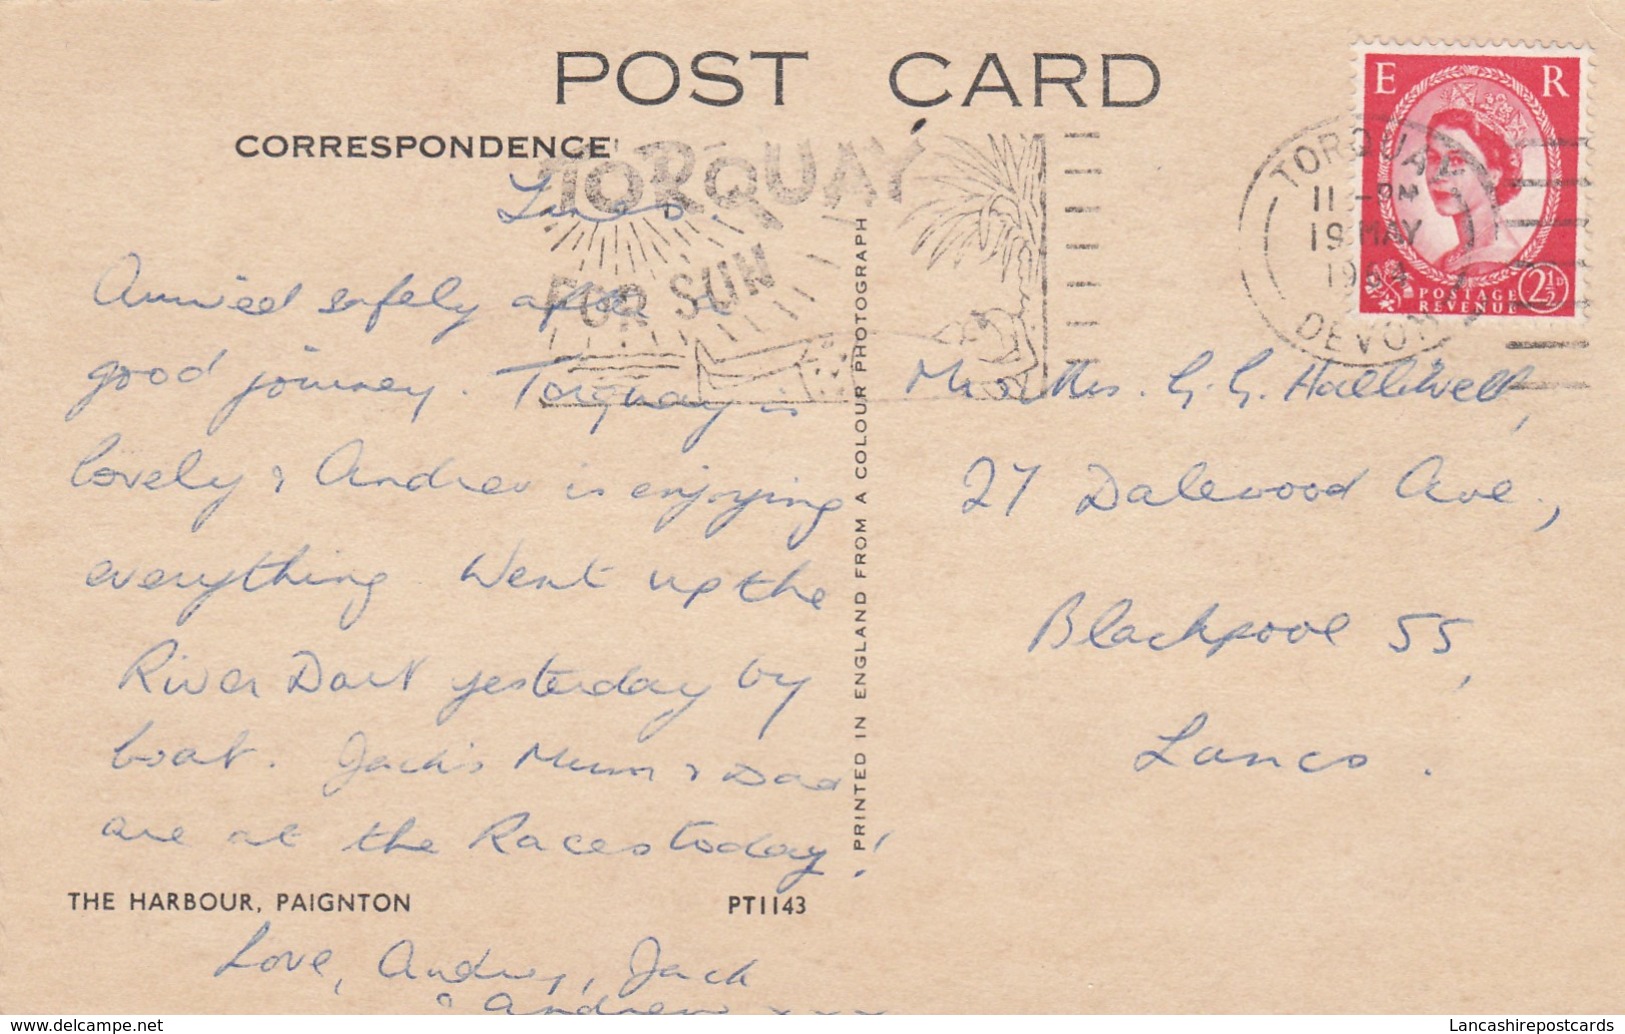 POST CARD
CORRESPONDENCE
TORQUAY
FOR SUN
TORQUAY
19 MAY
DEVON
E R
POSTAGE
REVENUE
2½D
Lancs.
Arrived safely after a
good journey. Torquay is
lovely & Andrew is enjoying
everything Went up the
River Dart yesterday by
boat. Jack's Mum & Dad
are at the Races today!
THE HARBOUR, PAIGNTON
PT1143
Love, Jack
& Andrew xxx
PRINTED IN ENGLAND FROM A COLOUR PHOTOGRAPH
Mr & Mrs. G. G. Halliwell,
27 Dalewood Ave.,
Blackpool SS,
Lancs.
Lancashirepostcards
© delcampe.net